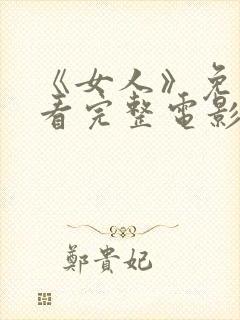 《女人》免
看完整电影
鄭貴妃